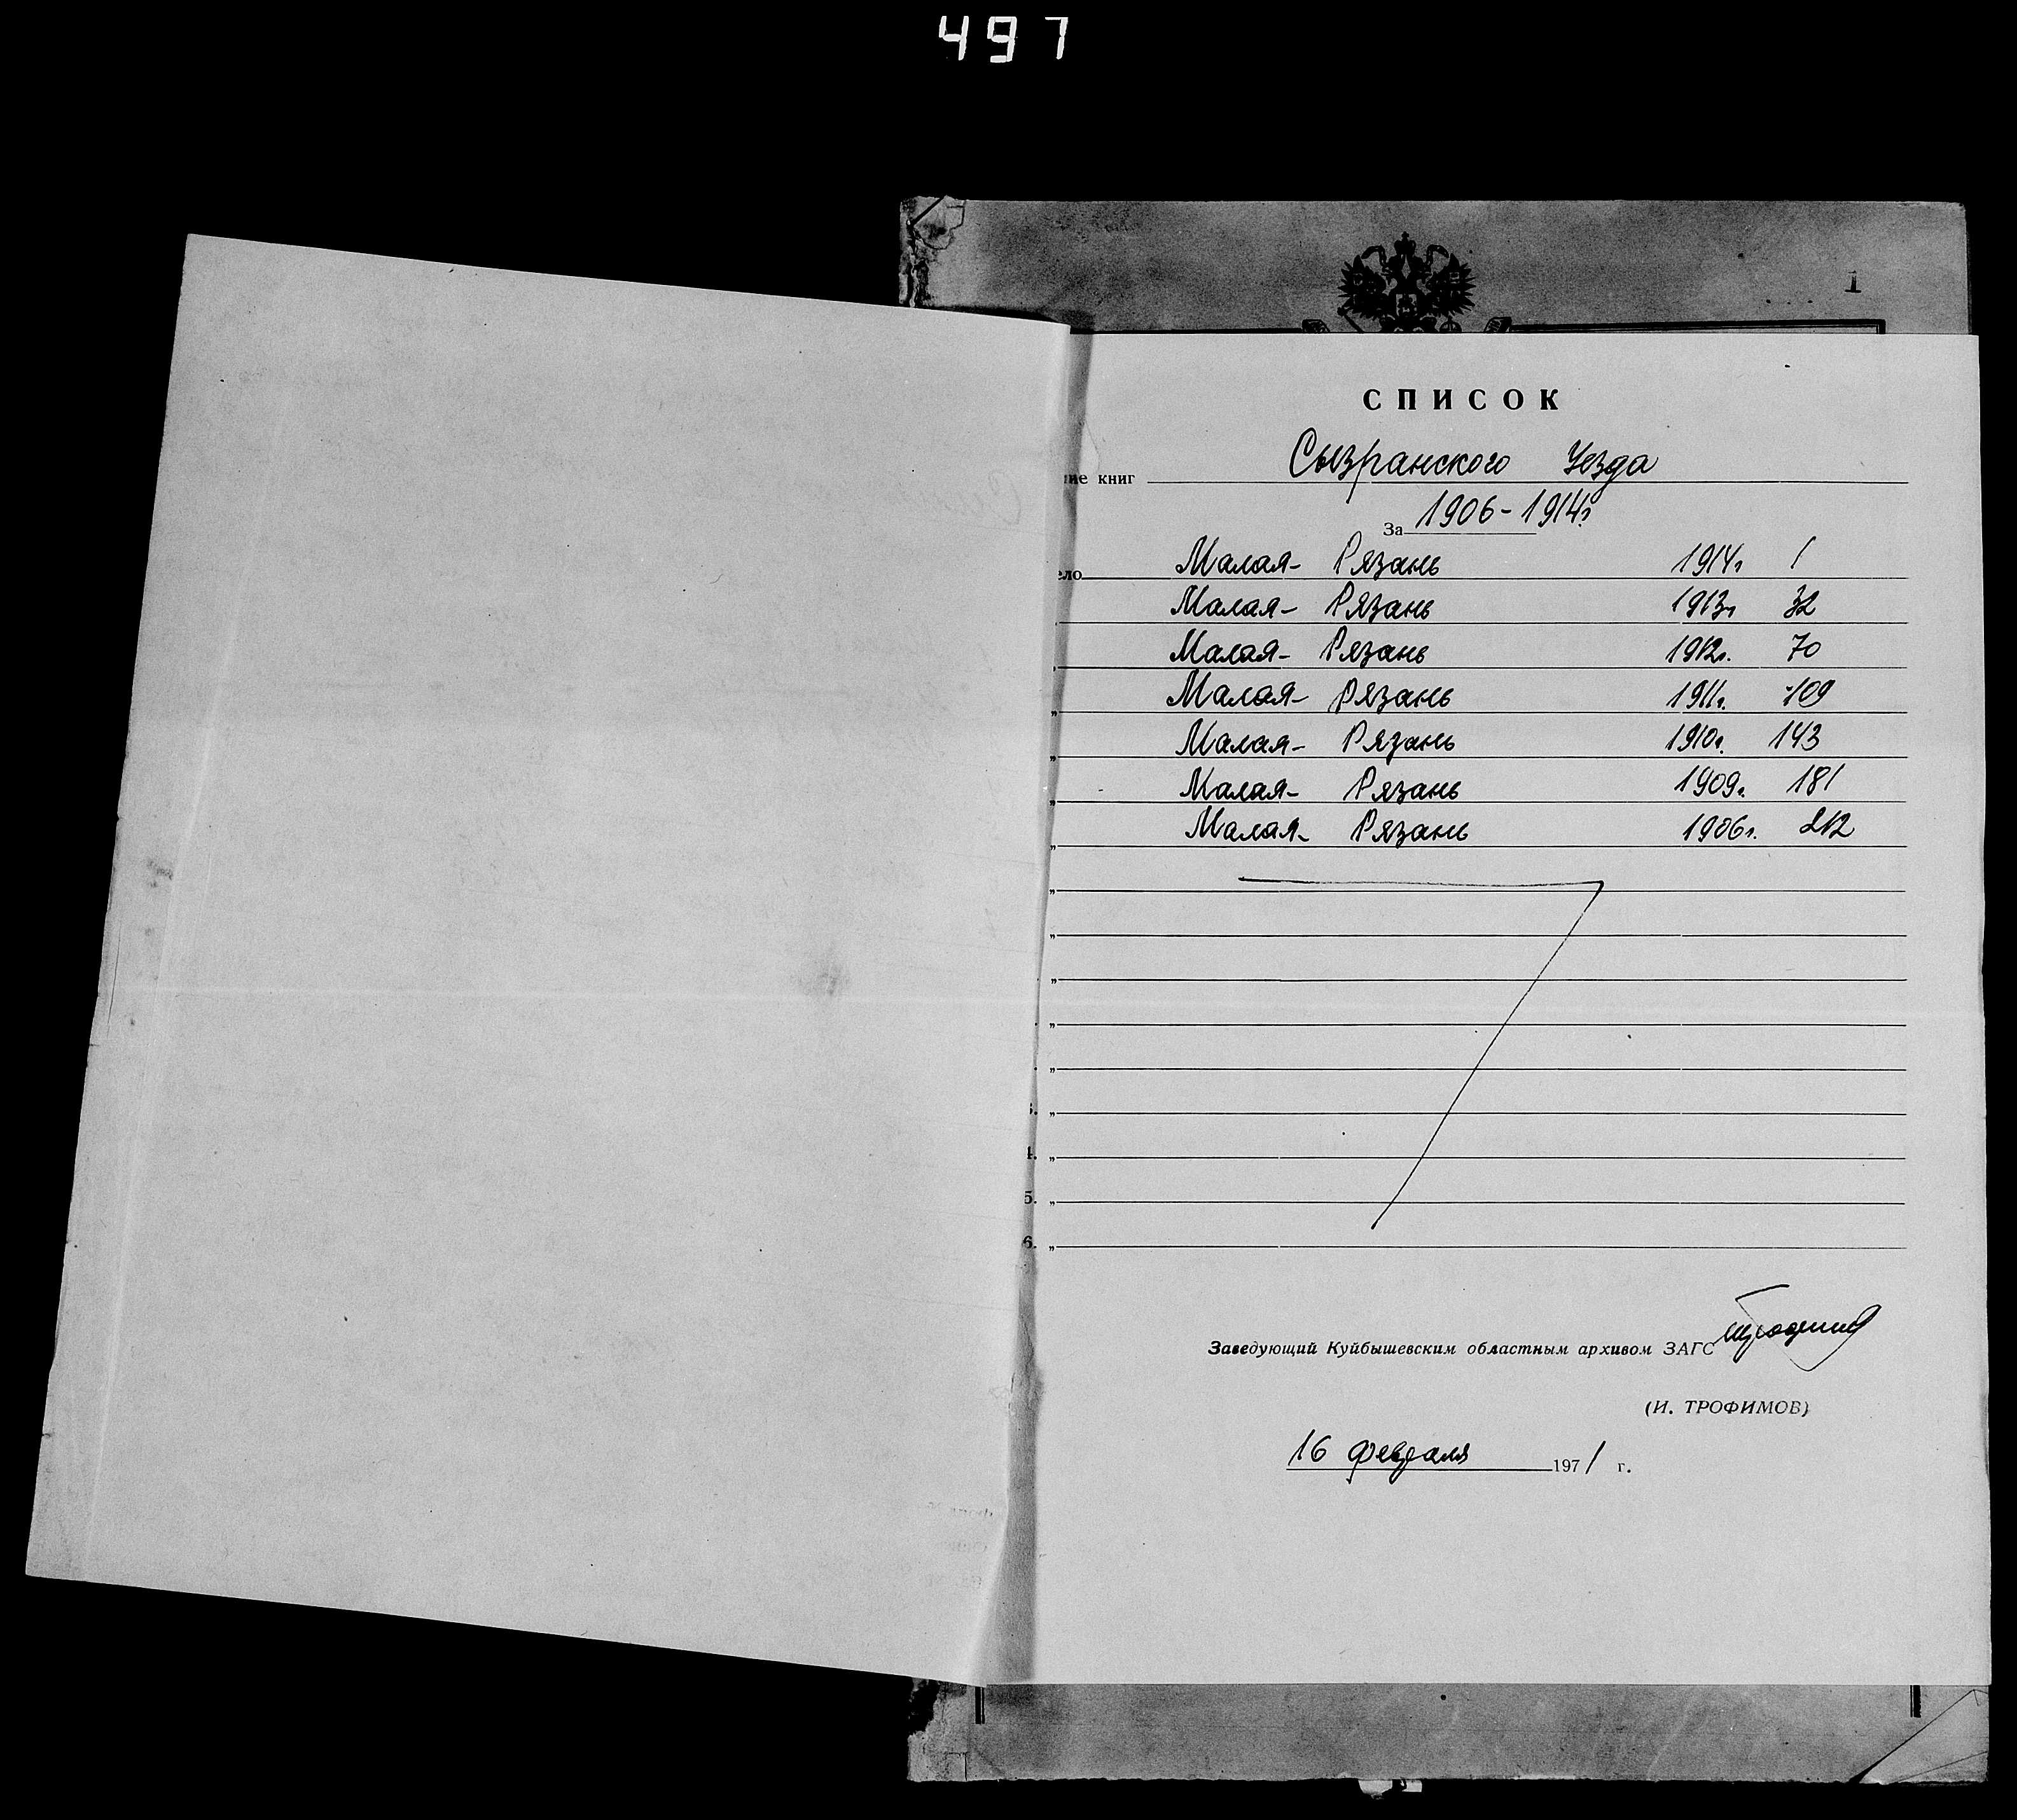 497
1
СПИСОК
ние книг Сызранского Уезда
За 1906-1914г
ело Малая- Рязань 1914г 1
Малая- Рязань 1913г 32
Малая- Рязань 1912г. 70
„ Малая- Рязань 1911г. 109
„ Малая- Рязань 1910г. 143
„ Малая- Рязань 1909г. 181
„ Малая- Рязань 1906г. 212
„
„
„
„
„
„
4. „
5. „
6. „
Заведующий Куйбышевским областным архивом ЗАГС
(И. ТРОФИМОВ)
16 февраля 1971 г.